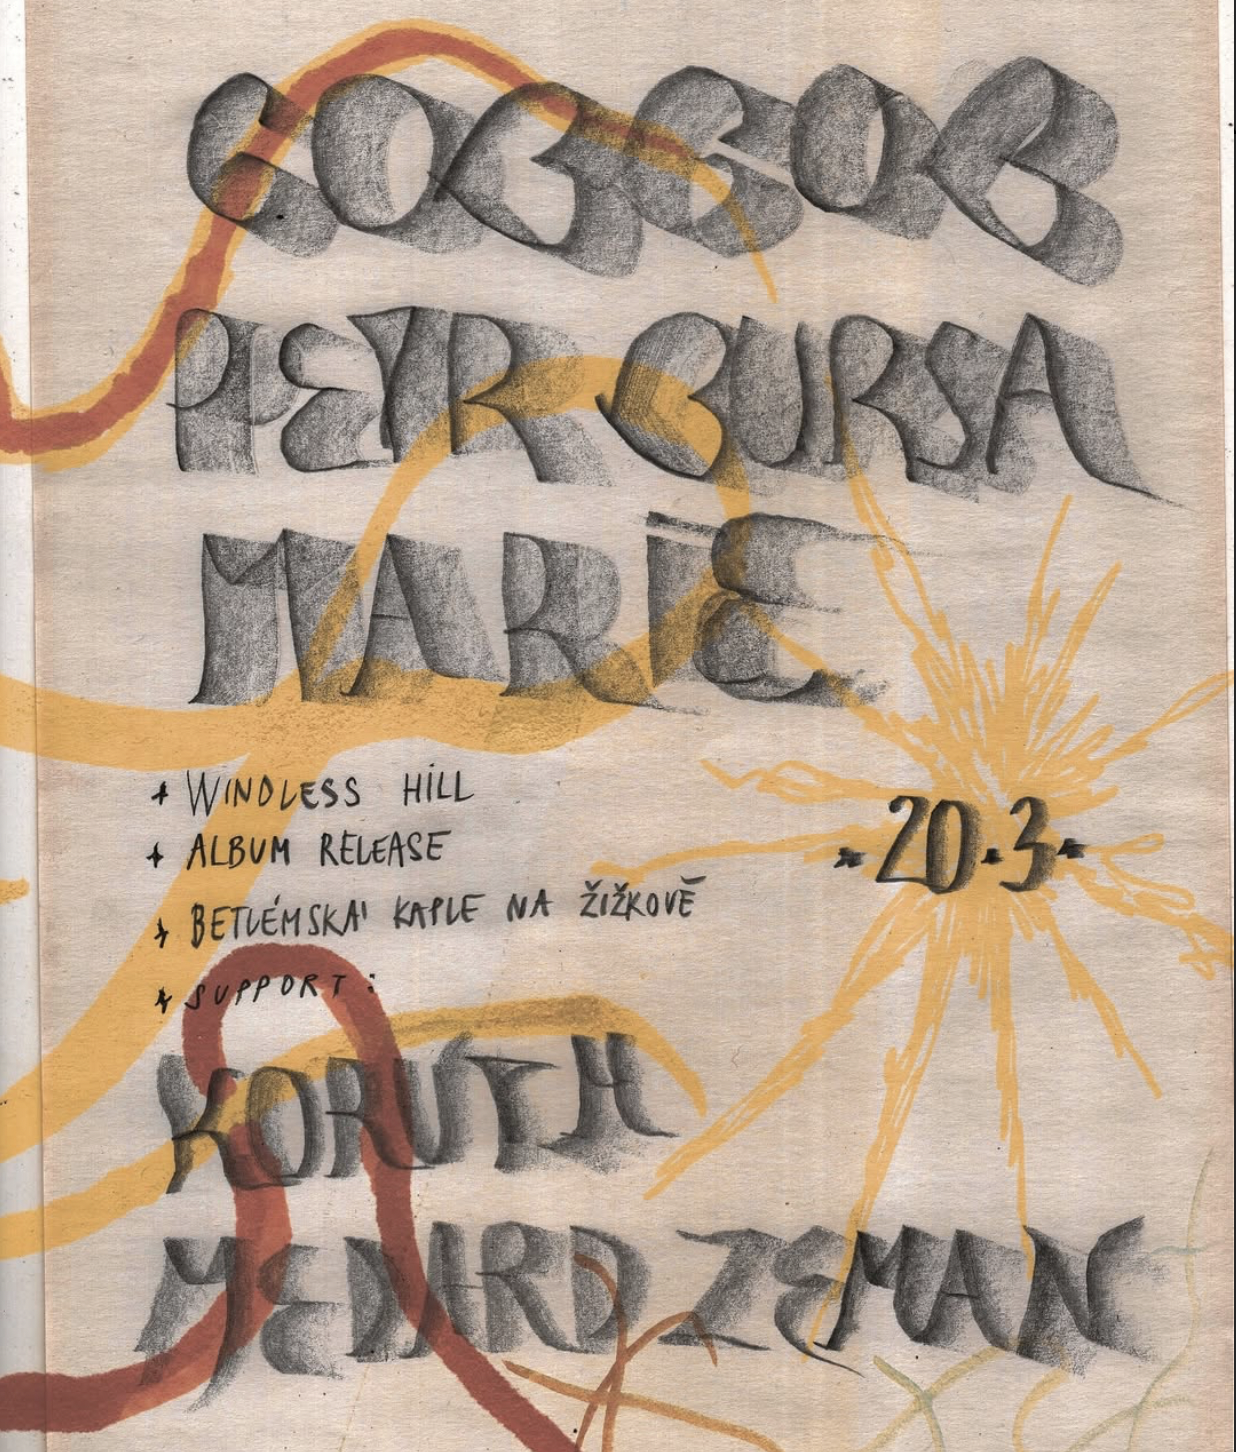 PETR GURSA
MARIE
+ WINDLESS HILL
+ ALBUM RELEASE
+ BETLÉMSKÁ KAPLE NA ŽIŽKOVĚ
+ SUPPORT:
KORUTH
MEDARD ZEMAN
20.3.